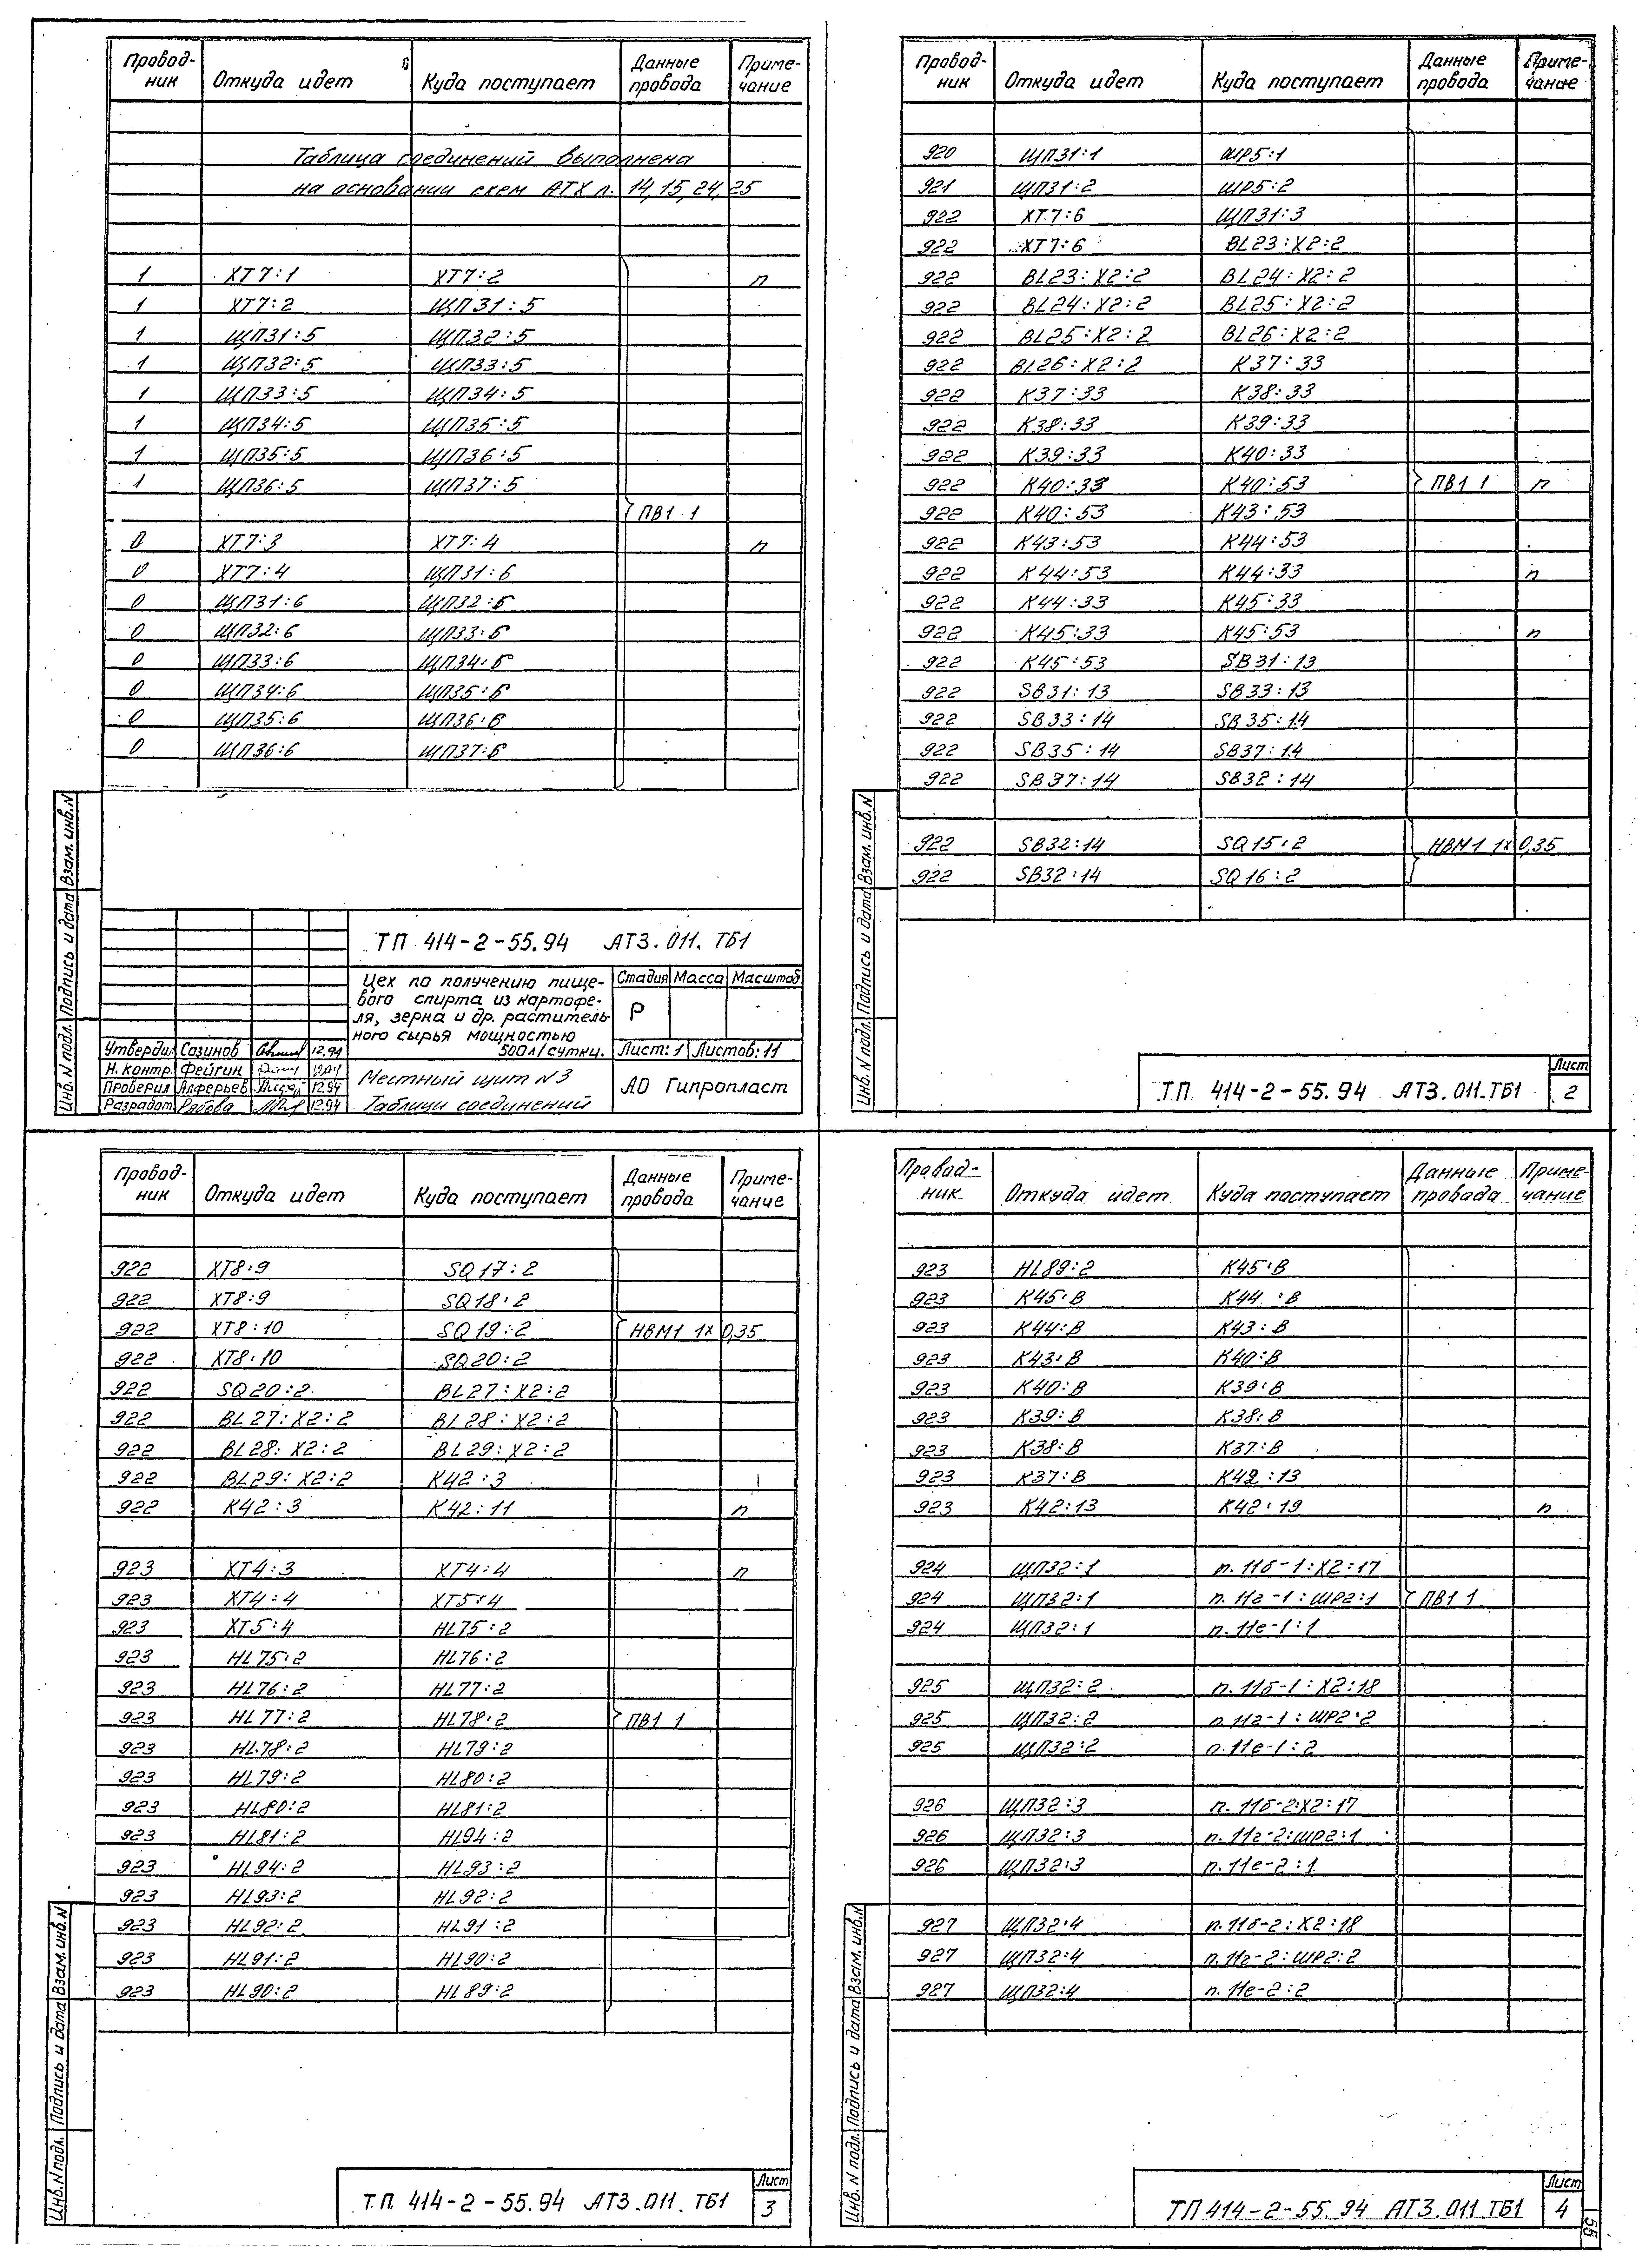 Провод-ник | Откуда идет | Куда поступает | Данные провода | Приме-чание
Таблица соединений выполнена
на основании схем АТХ л. 14, 15, 24, 25
1 | ХТ7:1 | ХТ7:2 | | п
1 | ХТ7:2 | ЩП31:5
1 | ЩП31:5 | ЩП32:5
1 | ЩП32:5 | ЩП33:5
1 | ЩП33:5 | ЩП34:5
1 | ЩП34:5 | ЩП35:5
1 | ЩП35:5 | ЩП36:5
1 | ЩП36:5 | ЩП37:5
ПВ1 1
0 | ХТ7:3 | ХТ7:4 | | п
0 | ХТ7:4 | ЩП31:6
0 | ЩП31:6 | ЩП32:6
0 | ЩП32:6 | ЩП33:6
0 | ЩП33:6 | ЩП34:6
0 | ЩП34:6 | ЩП35:6
0 | ЩП35:6 | ЩП36:6
0 | ЩП36:6 | ЩП37:6
Инв. N подл. | Подпись и дата | Взам. инв. N
ТП 414-2-55.94 АТ3.011.ТБ1
Цех по получению пище-
вого спирта из картофе-
ля, зерна и др. раститель-
ного сырья мощностью
500л/сутки.
Стадия | Масса | Масштаб
Р
Лист: 1 | Листов: 11
Утвердил | Созинов | 12.94
Н. контр. | Фейгин | 12.94
Проверил | Алферьев | 12.94
Разработ. | Рябова | 12.94
Местный щит N3
Таблици соединений
АО Гипропласт
Провод-ник | Откуда идет | Куда поступает | Данные провода | Приме-чание
920 | ЩП31:1 | ШР5:1
921 | ЩП31:2 | ШР5:2
922 | ХТ7:6 | ЩП31:3
922 | ХТ7:6 | BL23:X2:2
922 | BL23:X2:2 | BL24:X2:2
922 | BL24:X2:2 | BL25:X2:2
922 | BL25:X2:2 | BL26:X2:2
922 | BL26:X2:2 | К37:33
922 | К37:33 | К38:33
922 | К38:33 | К39:33
922 | К39:33 | К40:33
922 | К40:33 | К40:53 | ПВ1 1 | п
922 | К40:53 | К43:53
922 | К43:53 | К44:53
922 | К44:53 | К44:33 | | п
922 | К44:33 | К45:33
922 | К45:33 | К45:53 | | п
922 | К45:53 | SB31:13
922 | SB31:13 | SB33:13
922 | SB33:14 | SB35:14
922 | SB35:14 | SB37:14
922 | SB37:14 | SB32:14
922 | SB32:14 | SQ15:2 | НВМ1 1х0,35
922 | SB32:14 | SQ16:2
Инв. N подл. | Подпись и дата | Взам. инв. N
ТП 414-2-55.94 АТ3.011.ТБ1 | Лист 2
Провод-ник | Откуда идет | Куда поступает | Данные провода | Приме-чание
922 | ХТ8:9 | SQ17:2
922 | ХТ8:9 | SQ18:2
922 | ХТ8:10 | SQ19:2 | НВМ1 1х0,35
922 | ХТ8:10 | SQ20:2
922 | SQ20:2 | BL27:X2:2
922 | BL27:X2:2 | BL28:X2:2
922 | BL28:X2:2 | BL29:X2:2
922 | BL29:X2:2 | К42:3
922 | К42:3 | К42:11 | | п
923 | ХТ4:3 | ХТ4:4 | | п
923 | ХТ4:4 | ХТ5:4
923 | ХТ5:4 | HL75:2
923 | HL75:2 | HL76:2
923 | HL76:2 | HL77:2
923 | HL77:2 | HL78:2 | ПВ1 1
923 | HL78:2 | HL79:2
923 | HL79:2 | HL80:2
923 | HL80:2 | HL81:2
923 | HL81:2 | HL94:2
923 | HL94:2 | HL93:2
923 | HL93:2 | HL92:2
923 | HL92:2 | HL91:2
923 | HL91:2 | HL90:2
923 | HL90:2 | HL89:2
Инв. N подл. | Подпись и дата | Взам. инв. N
ТП 414-2-55.94 АТ3.011.ТБ1 | Лист 3
Провод-ник. | Откуда идет | Куда поступает | Данные провода | Приме-чание
923 | HL89:2 | К45:В
923 | К45:В | К44:В
923 | К44:В | К43:В
923 | К43:В | К40:В
923 | К40:В | К39:В
923 | К39:В | К38:В
923 | К38:В | К37:В
923 | К37:В | К42:13
923 | К42:13 | К42:19 | | п
924 | ЩП32:1 | п.11б-1:Х2:17
924 | ЩП32:1 | п.11г-1:ШР2:1 | ПВ1 1
924 | ЩП32:1 | п.11е-1:1
925 | ЩП32:2 | п.11б-1:Х2:18
925 | ЩП32:2 | п.11г-1:ШР2:2
925 | ЩП32:2 | п.11е-1:2
926 | ЩП32:3 | п.11б-2:Х2:17
926 | ЩП32:3 | п.11г-2:ШР2:1
926 | ЩП32:3 | п.11е-2:1
927 | ЩП32:4 | п.11б-2:Х2:18
927 | ЩП32:4 | п.11г-2:ШР2:2
927 | ЩП32:4 | п.11е-2:2
Инв. N подл. | Подпись и дата | Взам. инв. N
ТП 414-2-55.94 АТ3.011.ТБ1 | Лист 4
55